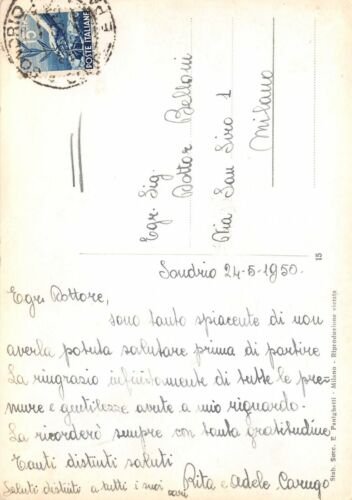 SONDRIO
15
POSTE ITALIANE
Egr. Sig.
Dottor Belloni
Via San Siro 1
Milano
Sondrio 24-6-1950.
Egr. Dottore,
sono tanto spiacente di non
averla potuta salutare prima di partire
La ringrazio infinitamente di tutte le pre-
mure e gentilezze avute a mio riguardo.
La ricorderò sempre con tanta gratitudine
Tanti distinti saluti
Rita e Adele Carugo
Saluti distinti a tutti i suoi cari
15
Stab. Succ. E. Pestighetti - Milano - Riproduzione vietata